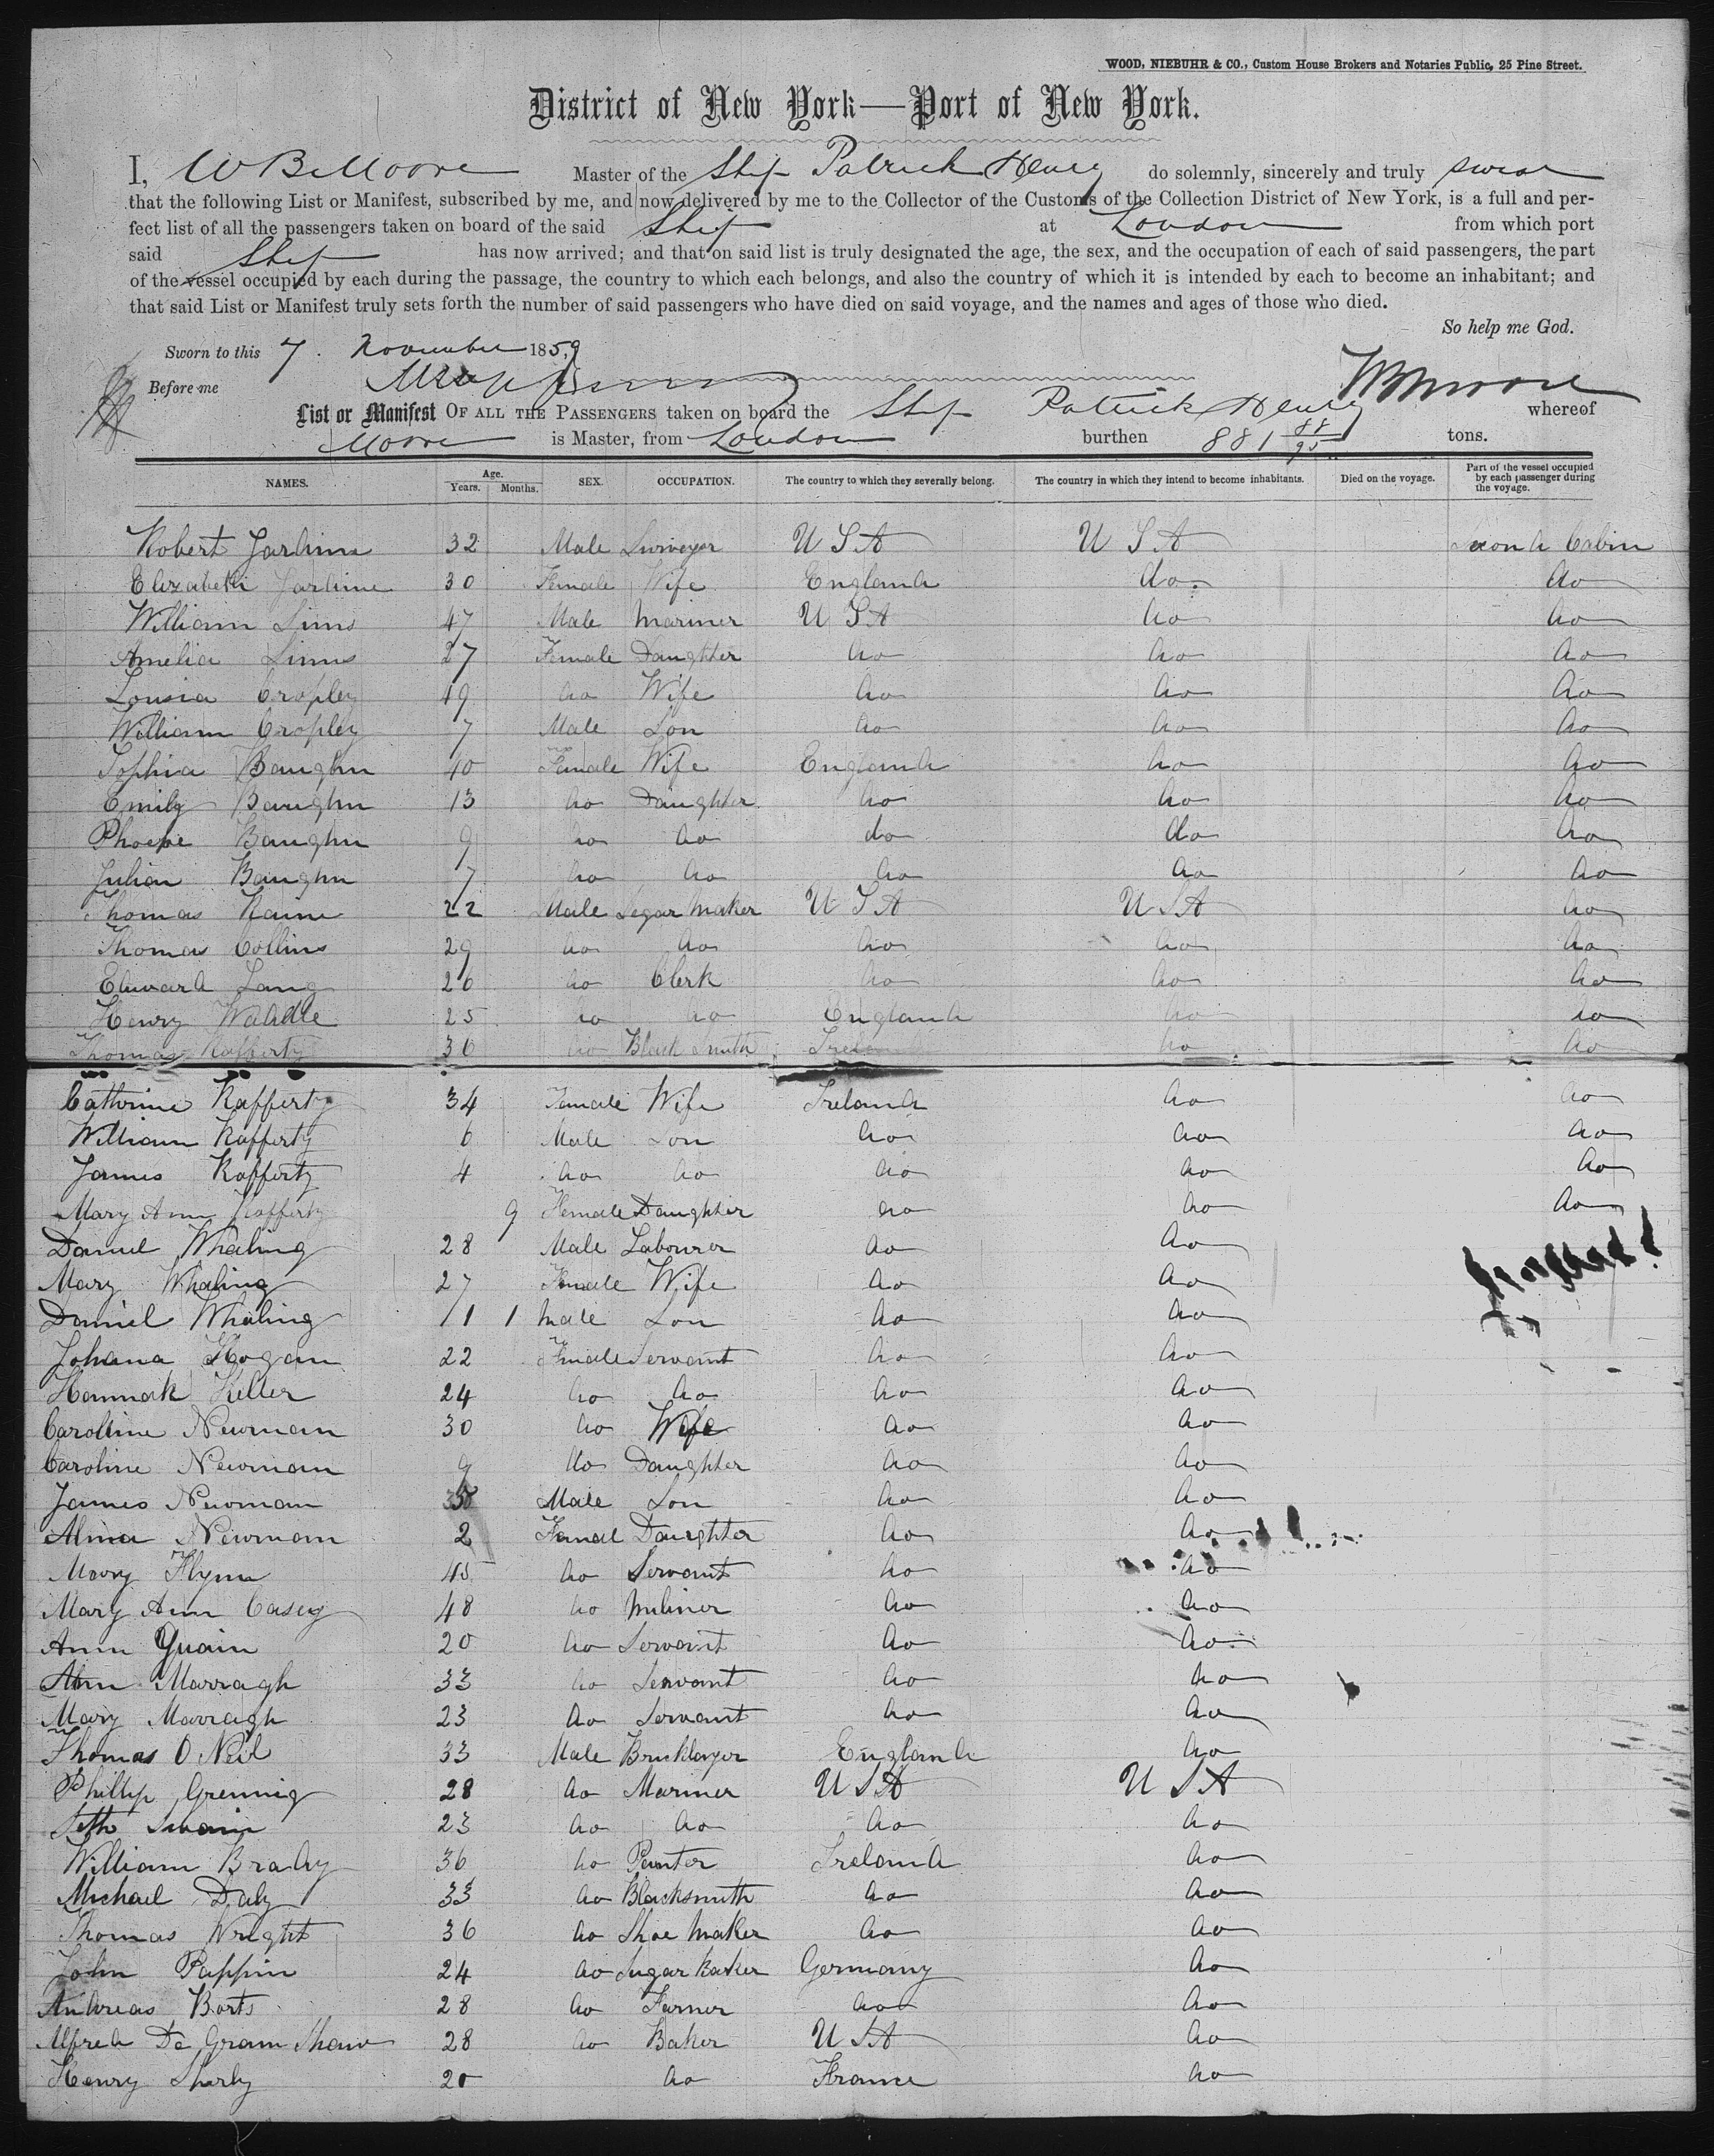 WOOD, NIEBUHR & CO., Custom House Brokers and Notaries Public, 25 Pine Street.
District of New York—Port of New York.
I, W B Moore Master of the Ship Patrick Henry do solemnly, sincerely and truly swear
that the following List or Manifest, subscribed by me, and now delivered by me to the Collector of the Customs of the Collection District of New York, is a full and per-
fect list of all the passengers taken on board of the said Ship at London from which port
said Ship has now arrived; and that on said list is truly designated the age, the sex, and the occupation of each of said passengers, the part
of the vessel occupied by each during the passage, the country to which each belongs, and also the country of which it is intended by each to become an inhabitant; and
that said List or Manifest truly sets forth the number of said passengers who have died on said voyage, and the names and ages of those who died.
So help me God.
Sworn to this 7. November 1859
Before me WBMoore
List or Manifest OF ALL THE PASSENGERS taken on board the Ship Patrick Henry whereof
Moore is Master, from London burthen 881 88/95 tons.
NAMES. Age. Years. Months. SEX. OCCUPATION. The country to which they severally belong. The country in which they intend to become inhabitants. Died on the voyage. Part of the vessel occupied by each passenger during the voyage.
Robert Jardine 32 Male Surveyor U S A U S A Second Cabin
Elizabeth Jardine 30 Female Wife England do do
William Sims 47 Male Mariner U S A do do
Amelia Simms 27 Female Daughter do do do
Lousia Cropley 49 do Wife do do do
William Cropley 7 Male Son do do do
Sophia Baughn 40 Female Wife England do do
Emily Baughn 13 do Daughter do do do
Phoebe Baughn 9 do do do do do
Julian Baughn 7 do do do do do
Thomas 22 Male Segar Maker U S A U S A do
Thomas Collins 29 do do do do do
Edward Lang 26 do Clerk do do do
Henry Waddle 25 do do England do do
Thomas Rafferty 36 do Black Smith Ireland do do
Cathrine Rafferty 34 Female Wife Ireland do do
William Rafferty 6 Male Son do do do
James Rafferty 4 do do do do do
Mary Ann Rafferty 9 Female Daughter do do do
Daniel Whaling 28 Male Labourer do do
Mary Whaling 27 Female Wife do do
Daniel Whaling 11 1 Male Son do do
Johana Hogan 22 Female Servant do do
Hannnah Keller 24 do do do do
Caroline Newman 30 do Wife do do
Caroline Newman 9 do Daughter do do
James Newman Male Son do do
Alma Newman 2 Femal Daughter do do
Mary Flynn 45 do Servant do do
Mary Ann Casey 48 do Miliner do do
Ann Quain 20 do Servant do do
Ann Marragh 33 do Servant do do
Mary Marragh 23 do Servant do do
Thomas O Neil 33 Male Bricklayer England do
Phillip Grennig 28 do Mariner U S A U S A
Seth Swain 23 do do do do
William Brady 36 do Painter Ireland do
Michael Daly 33 do Blacksmith do do
Thomas Wright 36 do Shoe Maker do do
John Pappin 24 do Sugar Baker Germany do
Andreas Borts 28 do Farmer do do
Alfred De Gram Shaw 28 do Baker U S A do
Henry Sharly 20 do France do